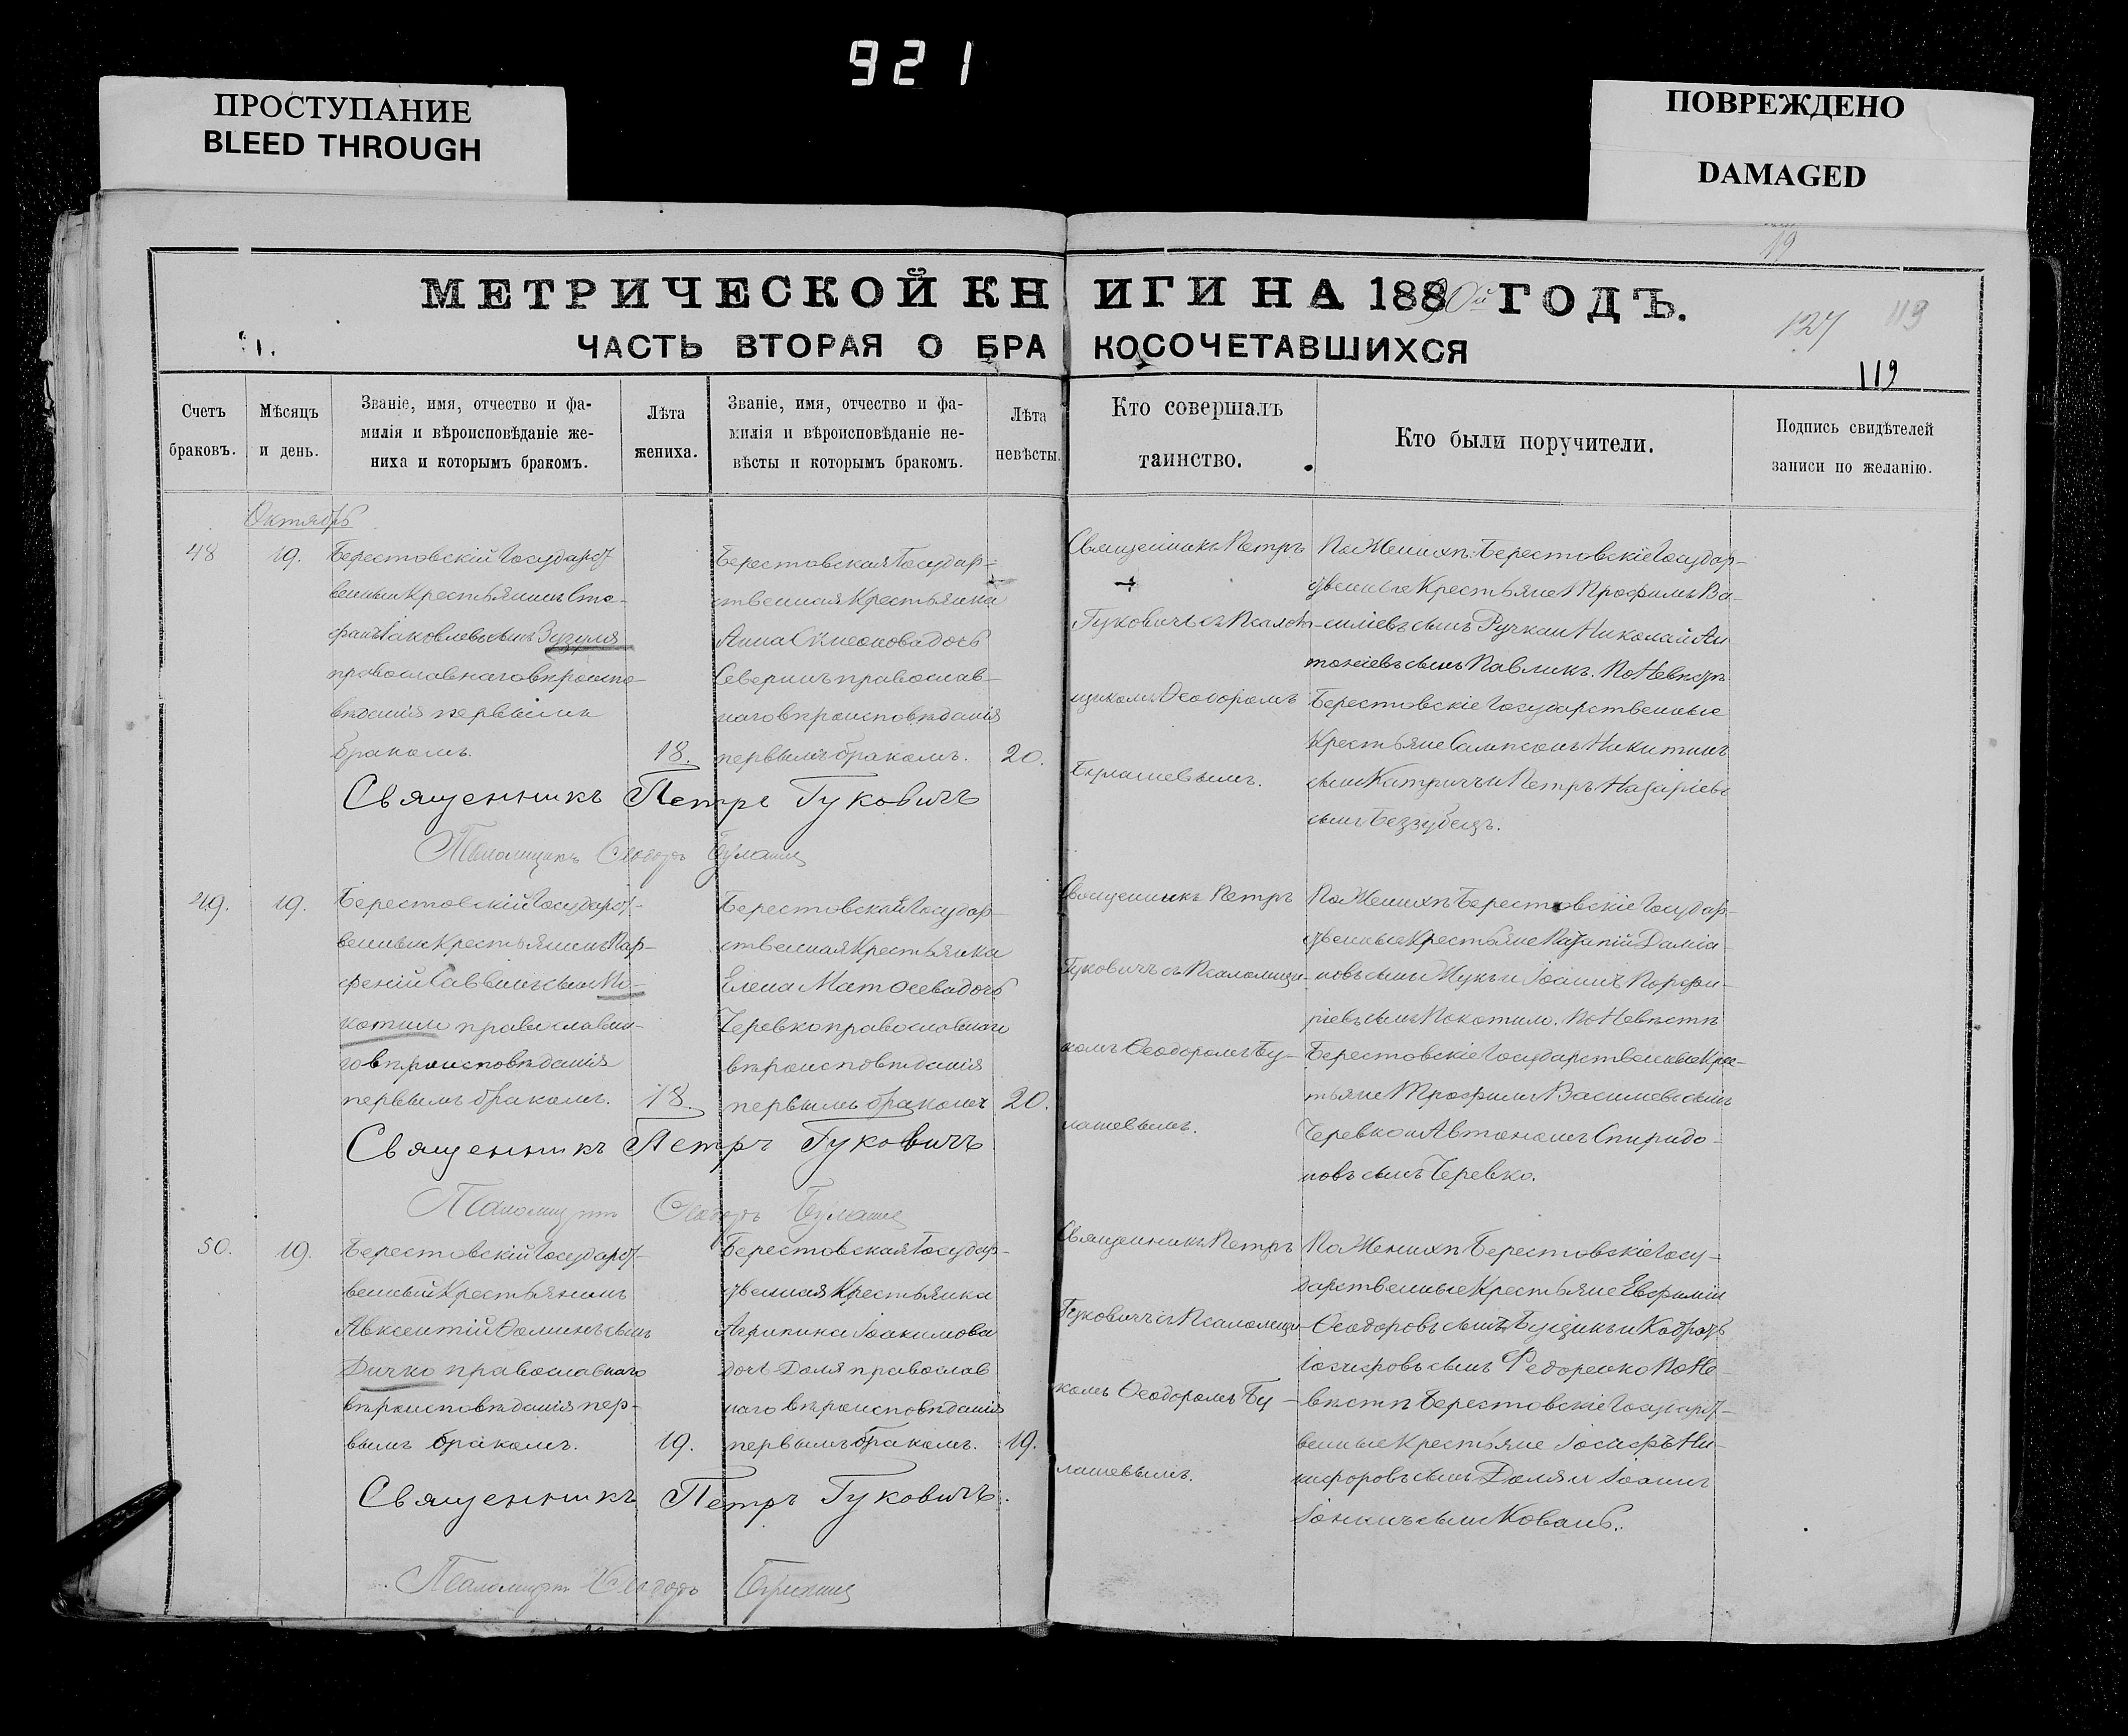 921
ПРОСТУПАНИЕ
BLEED THROUGH
ПОВРЕЖДЕНО
DAMAGED
19
МЕТРИЧЕСКОЙ КНИГИ НА 18890й ГОДЪ.
ЧАСТЬ ВТОРАЯ О БРАКОСОЧЕТАВШИХСЯ
127
119
119
Счетъ
браковъ.
Мѣсяцъ
и день.
Званіе, имя, отчество и фа-
милія и вѣроисповѣданіе же-
ниха и которымъ бракомъ.
Лѣта
жениха.
Званіе, имя, отчество и фа-
милія и вѣроисповѣданіе не-
вѣсты и которымъ бракомъ.
Лѣта
невѣсты.
Кто совершалъ
таинство.
Кто были поручители.
Подпись свидѣтелей
записи по желанію.
Октябрь
48
19.
Берестовскій Государст
венный Крестьянинъ Сте-
фанъ Іаковлевъ сынъ Зузуля
православнаго вѣроиспо-
вѣданія первымъ
бракомъ.
18.
Берестовская Государ-
ственная Крестьянка
Анна Симеонова дочь
Северинъ православ-
наго вѣроисповѣданія
первымъ бракомъ.
20.
Священникъ Петръ
Гуковичъ съ Псалом-
щикомъ Ѳеодоромъ
Булашевымъ.
По Женихѣ: Берестовскіе Государ-
ственные Крестьяне Трофимъ Ва-
силіевъ сынъ Ручка и Николай Ан
тоніевъ сынъ Павликъ. По Невѣстѣ
Берестовскіе Государственные
Крестьяне Сампсонъ Никитинъ
сынъ и Петръ Назаріевъ
сынъ Беззубецъ.
Священникъ Петръ Гуковичъ
Псаломщикъ Ѳеодоръ Булашев
49.
19.
Берестовскій Государст-
венные Крестьянинъ Пар-
феній Саввинъ сынъ По-
котило православна-
го вѣроисповѣданія
первымъ бракомъ.
18.
Берестовская Государ-
ственная Крестьянка
Елена Матѳева дочь
Черевко православнаго
вѣроисповѣданія
первымъ бракомъ
20.
Священникъ Петръ
Гуковичъ съ Псаломщи-
комъ Ѳеодоромъ Бу-
лашевымъ.
По Женихѣ Берестовскіе Государ-
ственные Крестьяне Даміа-
новъ сынъ Жукъ и Іоаннъ Порфи-
ріевъ сынъ Покотило. По Невѣстѣ
Берестовскіе Государственные Крес-
тьяне Трофимъ Василіевъ сынъ
Черевко и Автономъ Спиридо-
новъ сынъ Черевко.
Священникъ Петръ Гуковичъ
Псаломщикъ Ѳеодоръ Булашев
50.
19.
Берестовскій Государст-
венный Крестьянинъ
Авксентій Ѳоминъ сынъ
Дичко православнаго
вѣроисповѣданія пер-
вымъ бракомъ.
19.
Берестовская Государ-
ственная Крестьянка
Агрипина Іоакимова
дочь Доля православ
наго вѣроисповѣданія
первымъ бракомъ.
19.
Священникъ Петръ
Гуковичъ съ Псаломщи-
комъ Ѳеодоромъ Бу-
лашевымъ.
По Женихѣ Берестовскіе Госу-
дарственные Крестьяне Евфимій
Ѳеодоровъ сынъ и Кодратъ
Іосифовъ сынъ Федоренко По Не-
вѣстѣ Берестовскіе Государст-
венные Крестьяне Іосифъ Ни-
кифоровъ сынъ Доля и Іоаннъ
сынъ Коваль.
Священникъ Петръ Гуковичъ.
Псаломщикъ Ѳеодоръ Булашев